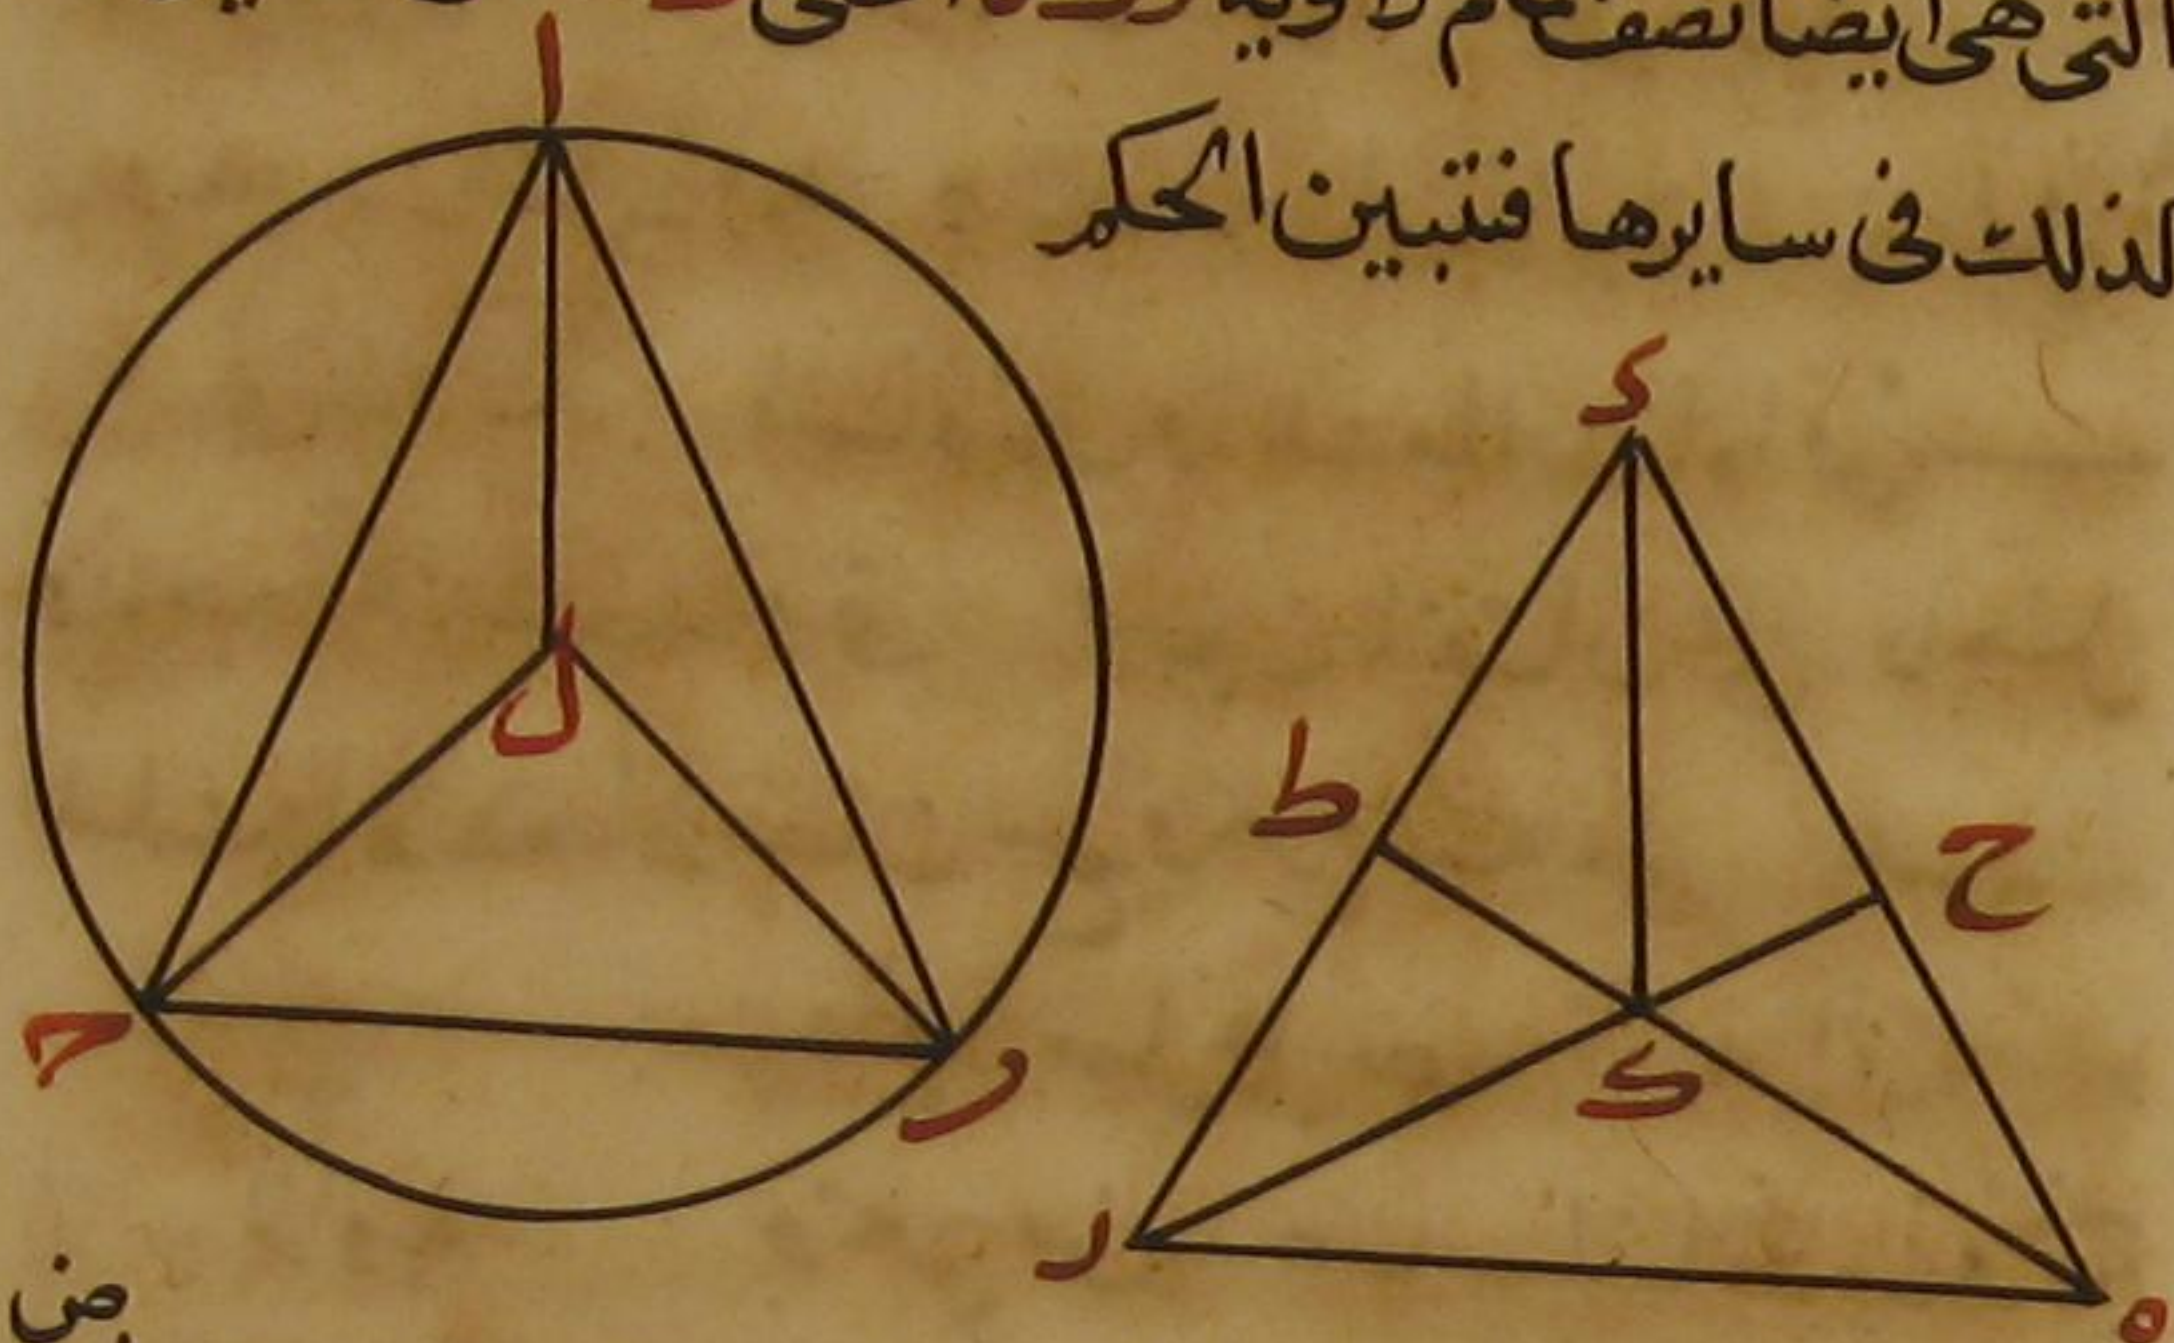 التى هى ايضا نصف تمام لاويه
لذلك فى سايرها فتبين الحكم
ا
ل
ح
ب
د
ط
ح
ك
ر
ه
ض